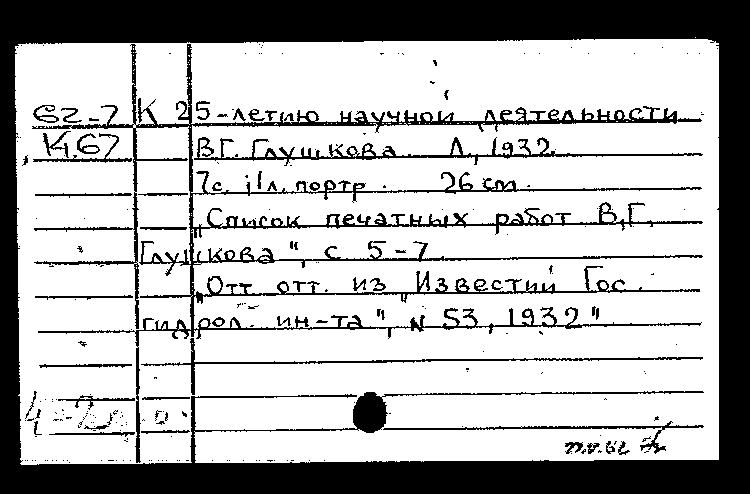 62-7 К 25-летию научной деятельности
К.67 В.Г. Глушкова Л., 1932.
7с. 1 л. портр. 26 cm.
„Список печатных работ В.Г.
Глушкова", с 5-7
„Отт отт. из „Известий Гос.
гидрол. ин-та", N 53, 1932"